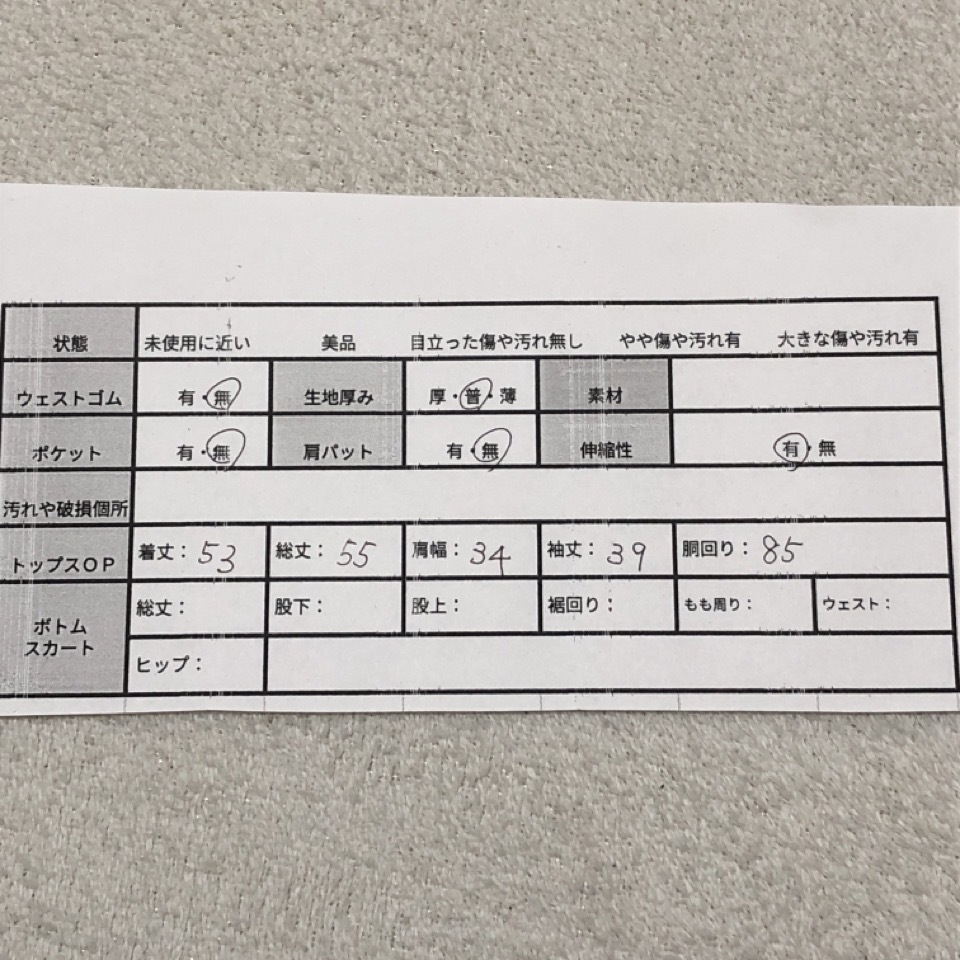 状態 未使用に近い 美品 目立った傷や汚れ無し やや傷や汚れ有 大きな傷や汚れ有
ウェストゴム 有・無 生地厚み 厚・普・薄 素材
ポケット 有・無 肩パット 有・無 伸縮性 有・無
汚れや破損個所
トップスOP 着丈：53 総丈：55 肩幅：34 袖丈：39 胴回り：85
ボトム
スカート
総丈： 股下： 股上： 裾回り： もも周り： ウェスト：
ヒップ：